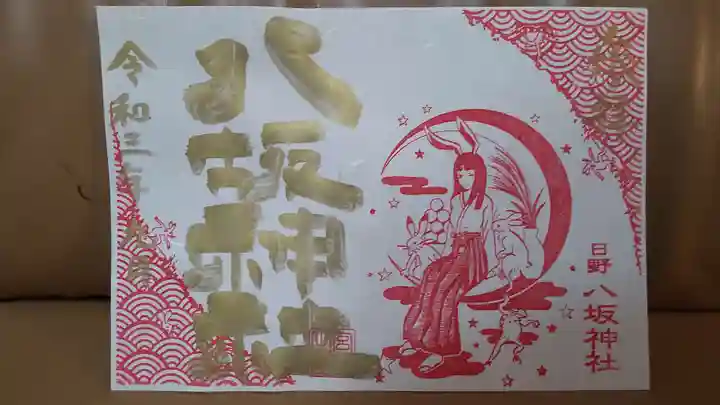 奉拝
日野 八坂神社
八坂神社
令和三年九月